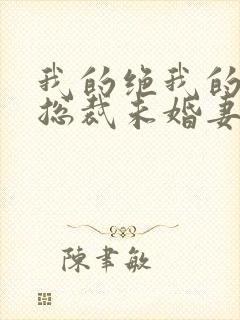 我的绝我的
总裁未婚妻
陳聿敏